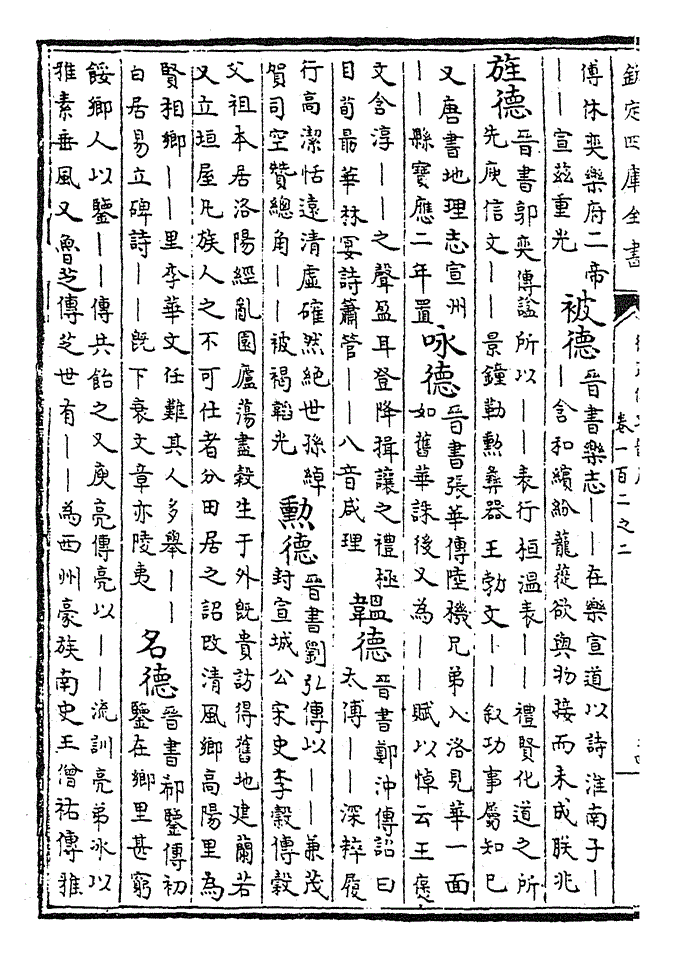 欽定四庫全書
卷一百二之二
傅休奕樂府二帝
——宣茲重光
被德
晉書樂志——在樂宣道以詩淮南子—
—含和繽紛蘢蓯欲與物接而未成朕兆
旌德
晉書郭奕傳諡所以——表行桓温表——禮賢化道之所
先庾信文——景鐘勒勲彝器王勃文——叙功事屬知已
又唐書地理志宣州
——縣寶應二年置
咏德
晉書張華傳陸機兄弟入洛見華一面
如舊華誅後又為——賦以悼云王褒
文含淳——之聲盈耳登降揖讓之禮極
目荀朂華林宴詩簫管——八音咸理
韞德
晉書鄭沖傳詔曰
太傅——深粹履
行高潔恬遠清虛確然絶世孫綽
賀司空贊總角——被褐韜光
勲德
晉書劉弘傳以——兼茂
封宣城公宋史李穀傳穀
父祖本居洛陽經亂園廬蕩盡穀生于外既貴訪得舊地建蘭若
又立垣屋凡族人之不可仕者分田居之詔改清風鄉高陽里為
賢相鄉——里李華文任難其人多舉——
白居易立碑詩——既下衰文章亦陵夷
名德
晉書郗鑒傳初
鑒在鄉里甚窮
餒鄉人以鑒——傳共飴之又庾亮傳亮以——流訓亮弟冰以
雅素垂風又魯芝傳芝世有——為西州豪族南史王僧祐傳雅